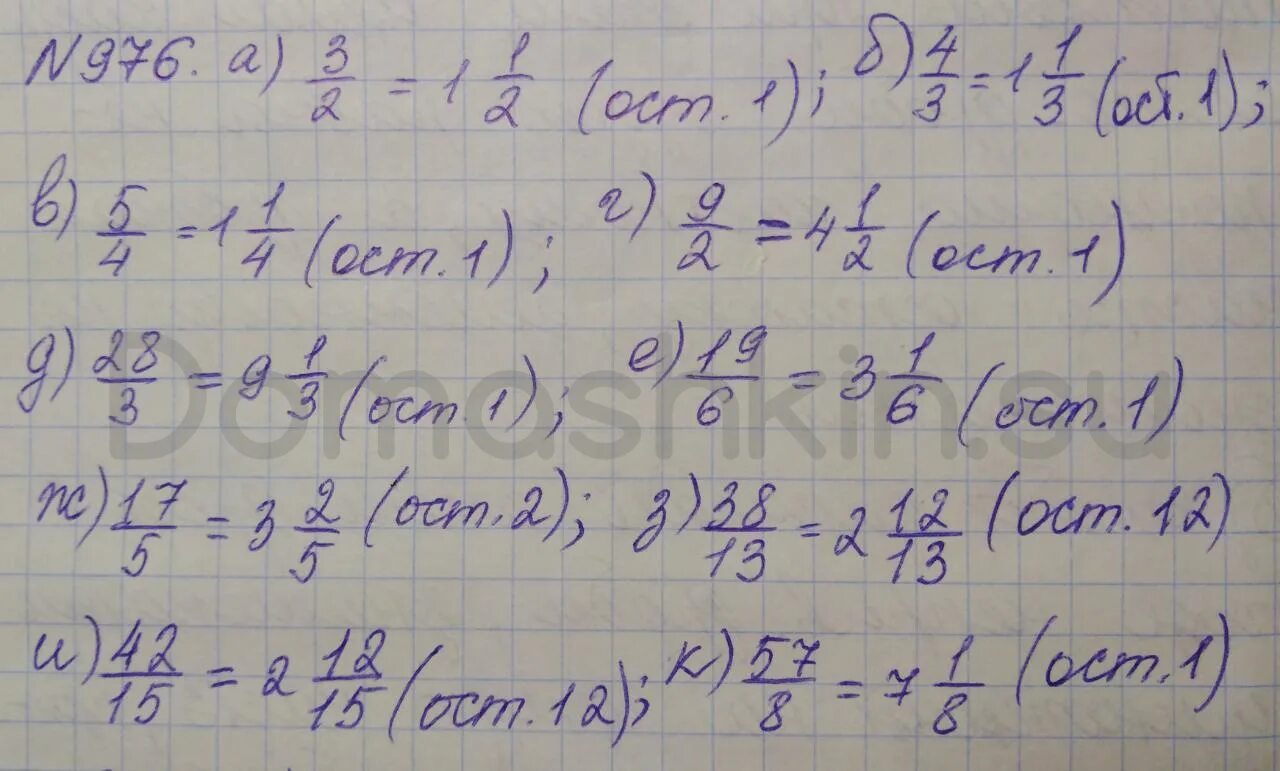 N976. а) 3/2 = 1 1/2 (ост. 1); б) 4/3 = 1 1/3 (ост. 1);
в) 5/4 = 1 1/4 (ост. 1); г) 9/2 = 4 1/2 (ост. 1)
д) 28/3 = 9 1/3 (ост. 1); е) 19/6 = 3 1/6 (ост. 1)
Domashkin.su
ж) 17/5 = 3 2/5 (ост. 2); з) 38/13 = 2 12/13 (ост. 12)
и) 42/15 = 2 12/15 (ост. 12); к) 57/8 = 7 1/8 (ост. 1)